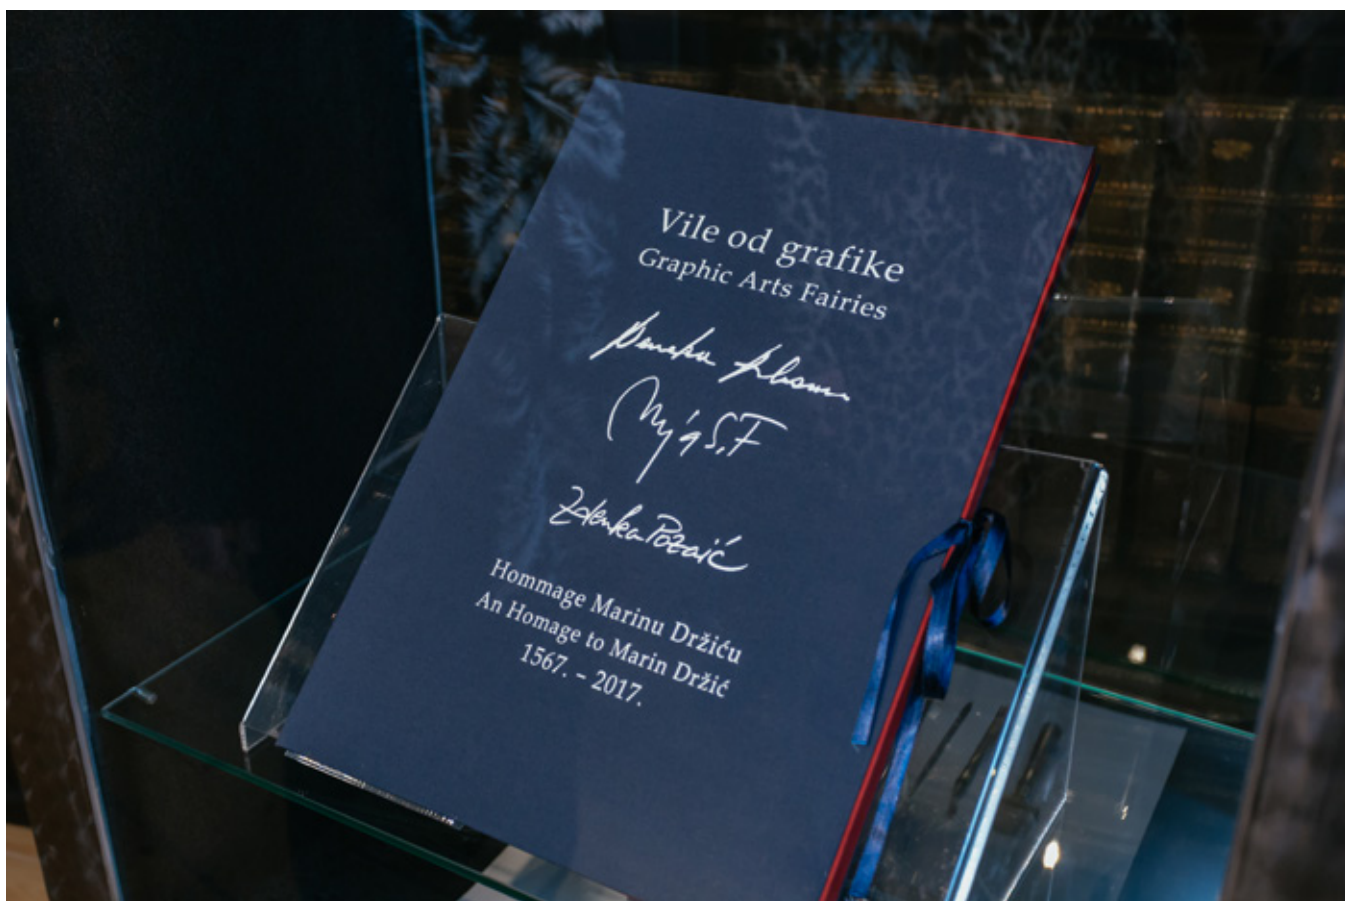 Vile od grafike
Graphic Arts Fairies
Zdenka Pozaić
Hommage Marinu Držiću
An Homage to Marin Držić
1567. – 2017.